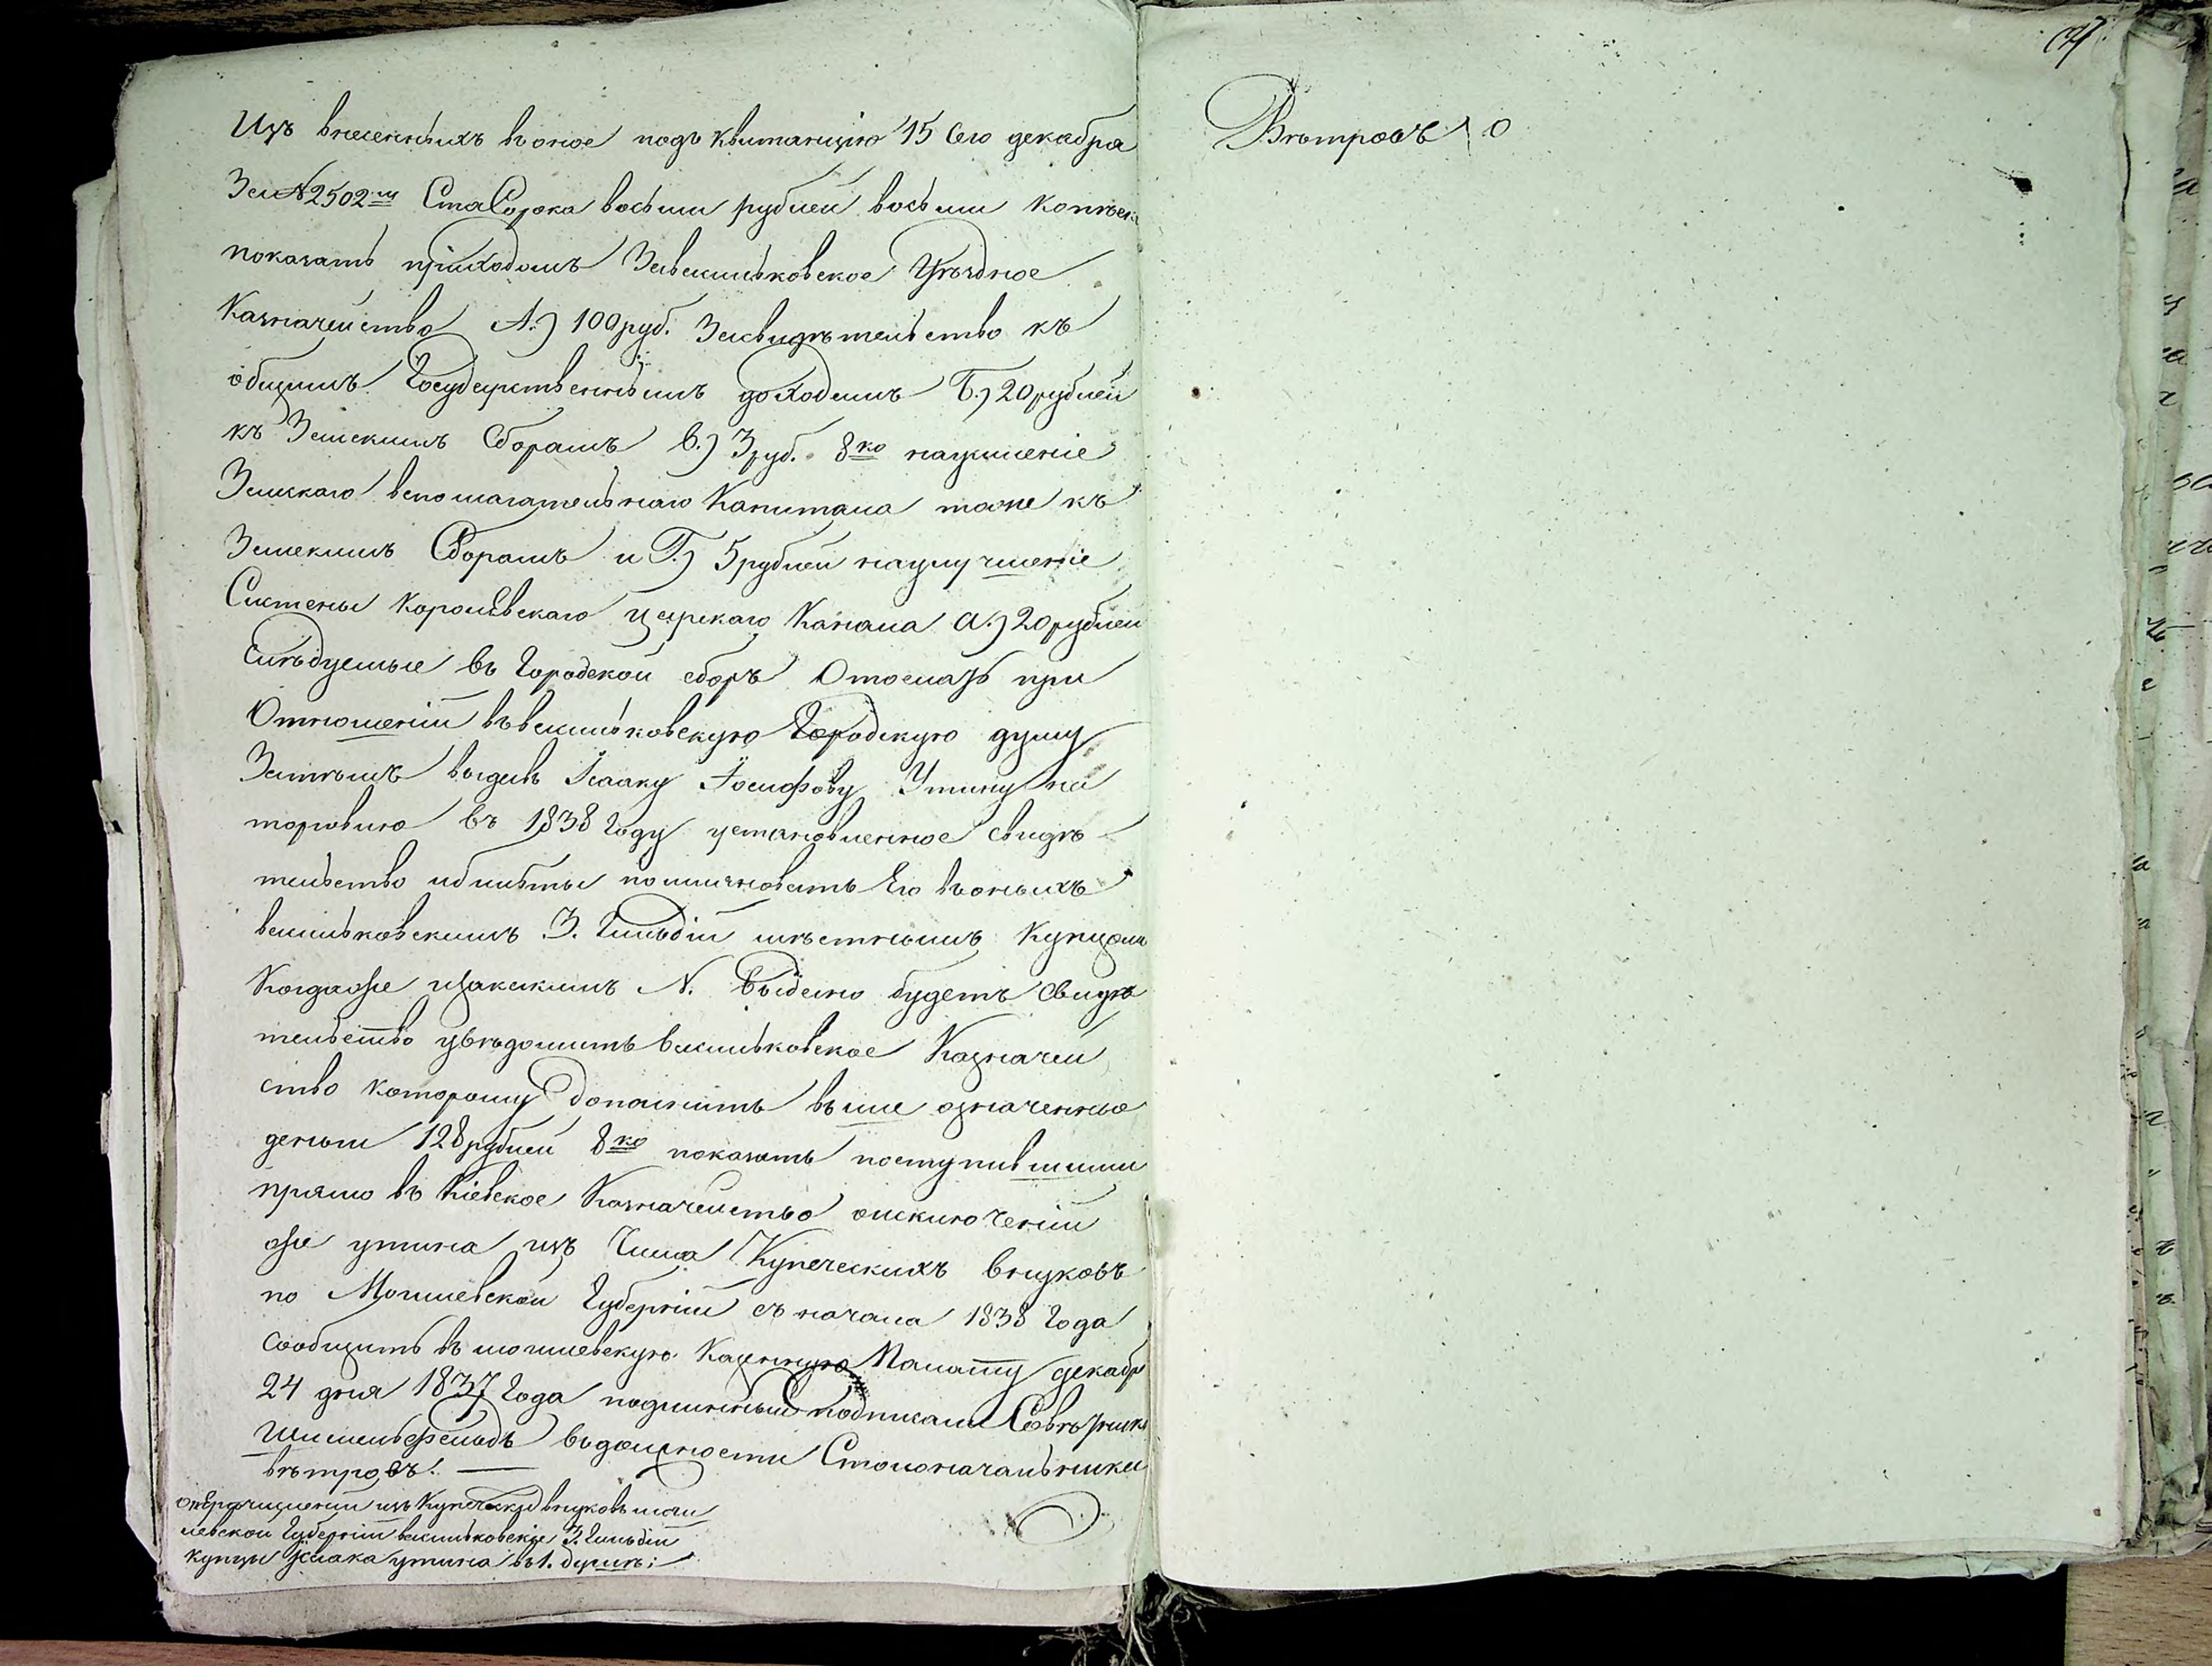 Изъ внесенныхъ въ оное подъ квитанцію 15 сего декабря
за № 2502 м Ста Сорока восьми рублей восьми копѣек
показать приходомъ За васильковское Уѣздное
Казначейство А.) 100 руб. За свидѣтельство къ
общимъ Государственнымъ доходамъ Б.) 20 рублей
къ Земскимъ Сборамъ В.) 3 руб. 8 ко на усиленіе
Земскаго вспомагательнаго Капитала тоже къ
Земскимъ Сборамъ и Г.) 5 рублей на улучшеніе
Системы Королевскаго Канала а.) 20 рублей
Слѣдуемые въ Городской сборъ Отослать при
Отношеніи въ васильковскую Городскую думу
Затѣмъ выдавъ Исааку Іосифову Утину на
торговлю въ 1838 Году установленное свидѣ
тельство и билеты поименовать Его въ оныхъ
васильковскимъ 3. Гильдіи мѣстнымъ Купцом
Когда же и за какимъ N. Выдано будетъ Свидѣ
тельство увѣдомить васильковское Казначей
ство которому дополнить выше означенные
деньги 128 рублей 8 ко показать поступившими
прямо въ Кіевское Казначейство о исключеніи
же утина изъ Числа Купеческихъ внуковъ
по Могилевской Губерніи съ начала 1838 Года
сообщить въ могилевскую Казенную Палату декабр
24 дня 1837 Года подлинный подписали Совѣтник
въ должности Столоначальника
вѣтровъ.
изъ Купеческих внуковъ моги
левской Губерніи васильковскіе 3. Гильдіи
купцы Исаака утина въ 1. душѣ;
Вѣтровъ